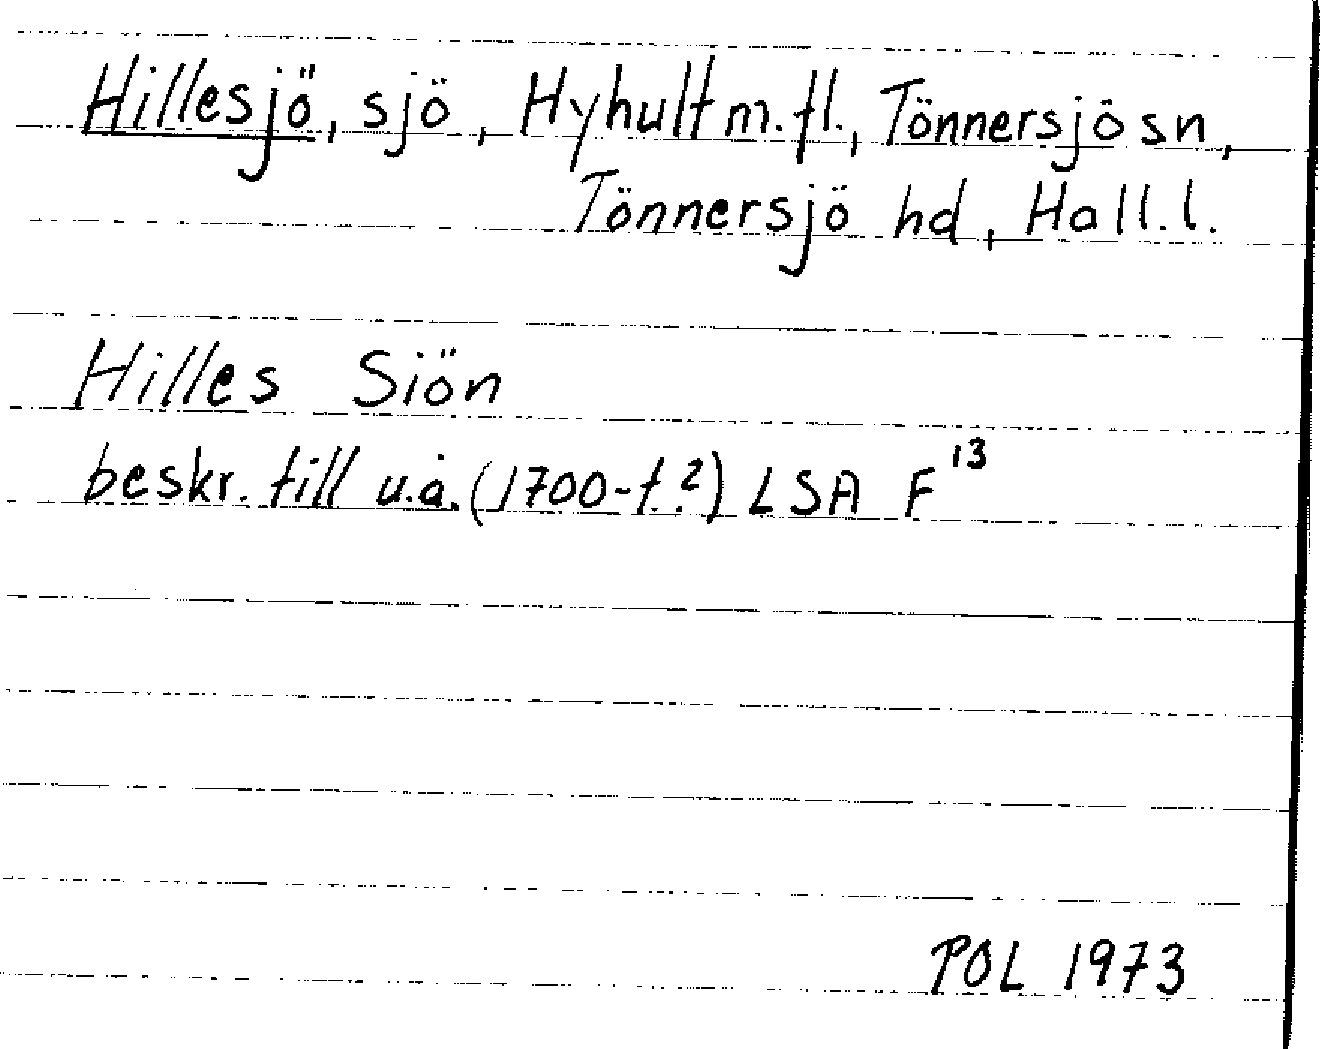 Hillesjö, sjö, Hyhult m.fl., Tönnersjö sn,
Tönnersjö hd, Hall.l.
Hilles Siön
beskr. till u.å. (1700-t.?) LSA F 13
POL 1973